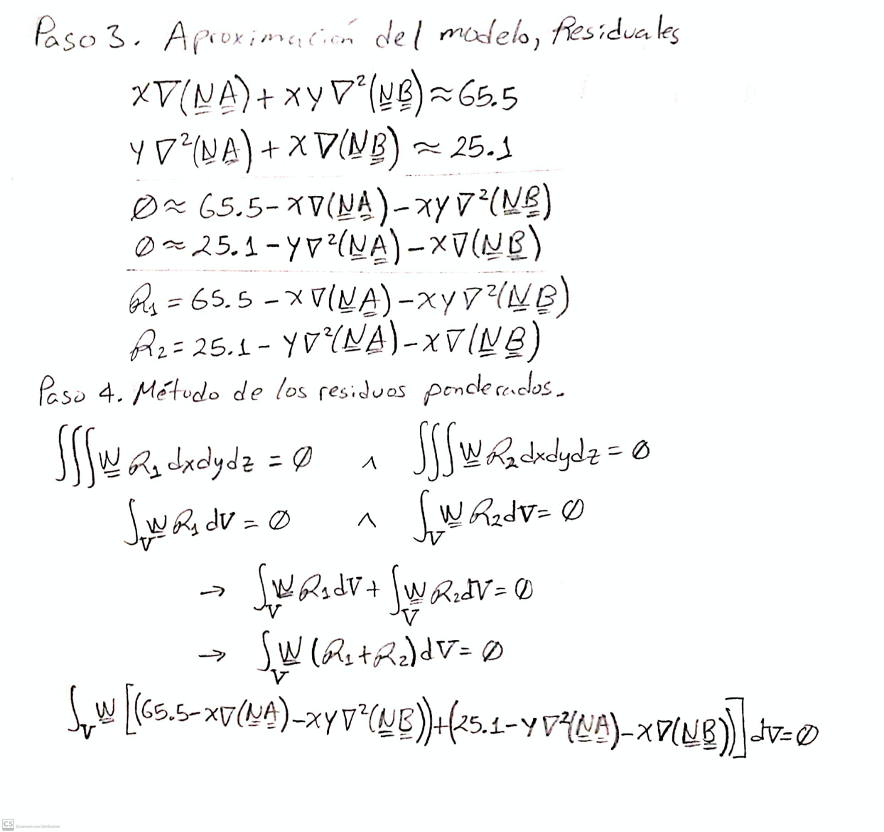 Paso 3. Aproximación del modelo, Residuales
X∇(N̳A̳)+XY∇²(N̳B̳)≈65.5
Y∇²(N̳A̳)+X∇(N̳B̳)≈25.1
∅≈65.5-X∇(N̳A̳)-XY∇²(N̳B̳)
∅≈25.1-Y∇²(N̳A̳)-X∇(N̳B̳)
R₁=65.5-X∇(N̳A̳)-XY∇²(N̳B̳)
R₂=25.1-Y∇²(N̳A̳)-X∇(N̳B̳)
Paso 4. Método de los residuos ponderados.
∭W̳R₁dxdydz=∅ ∧ ∭W̳R₂dxdydz=∅
∫_V W̳R₁dV=∅ ∧ ∫_V W̳R₂dV=∅
→ ∫_V W̳R₁dV+∫_V W̳R₂dV=∅
→ ∫_V W̳(R₁+R₂)dV=∅
∫_V W̳[(65.5-X∇(N̳A̳)-XY∇²(N̳B̳))+(25.1-Y∇²(N̳A̳)-X∇(N̳B̳))]dV=∅
CS